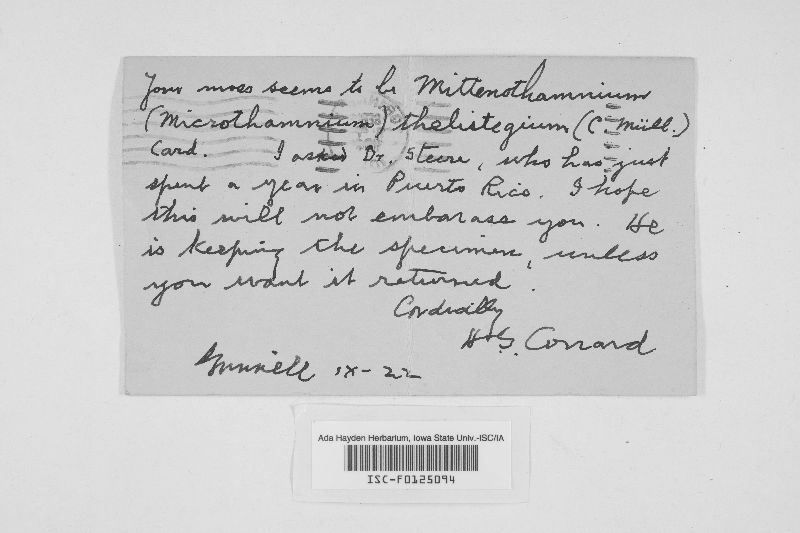 Your moss seems to be Mittenothamnium
(Microthamnium) thelistegium (C. Müll.)
Card. I asked Dr. Steere, who has just
spent a year in Puerto Rico. I hope
this will not embarass you. He
is keeping the specimen, unless
you want it returned.
Cordially
H S. Conrard
Grinnell IX-22
Ada Hayden Herbarium, Iowa State Univ.-ISC/IA
ISC-F0125094